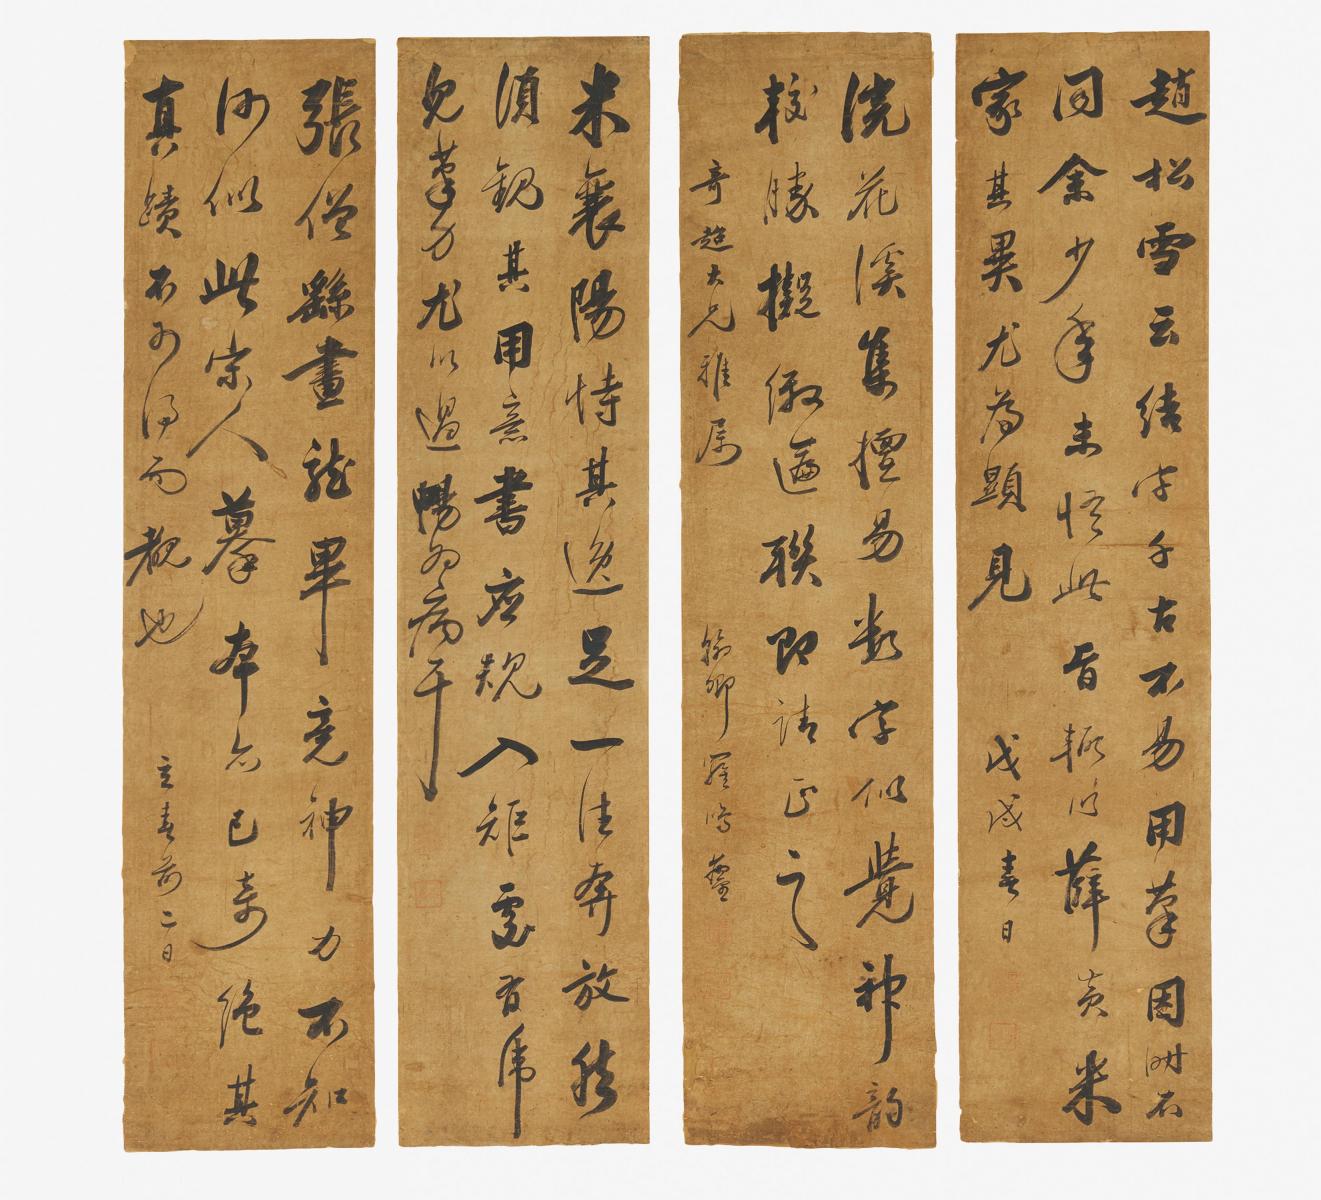 趙松雪云結字千古不易用筆因時不
同余少年未悟此旨輒以薛黃米
家其異尤為顯見
戊戌春日
浣花溪集檀易數字似覺神韵
較勝擬倣遍聯即請正之
奇超大兄雅屬
翰卿羅
米襄陽恃其逸足一往奔放然
須觀其用意書應規入矩處有序
見筆力尤以過暢為病干
張僧繇畫龍畢竟神力不知
何似此宗人摹本亦已奇絕其
真蹟不可得而觀也
立春前二日